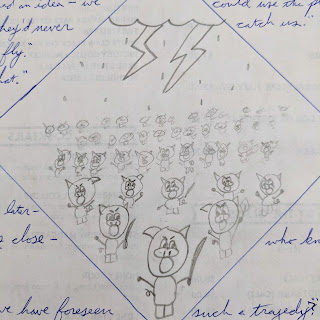 an idea – we could use the
they'd never catch us."
fly."
later –
close – who
have foreseen such a tragedy?"